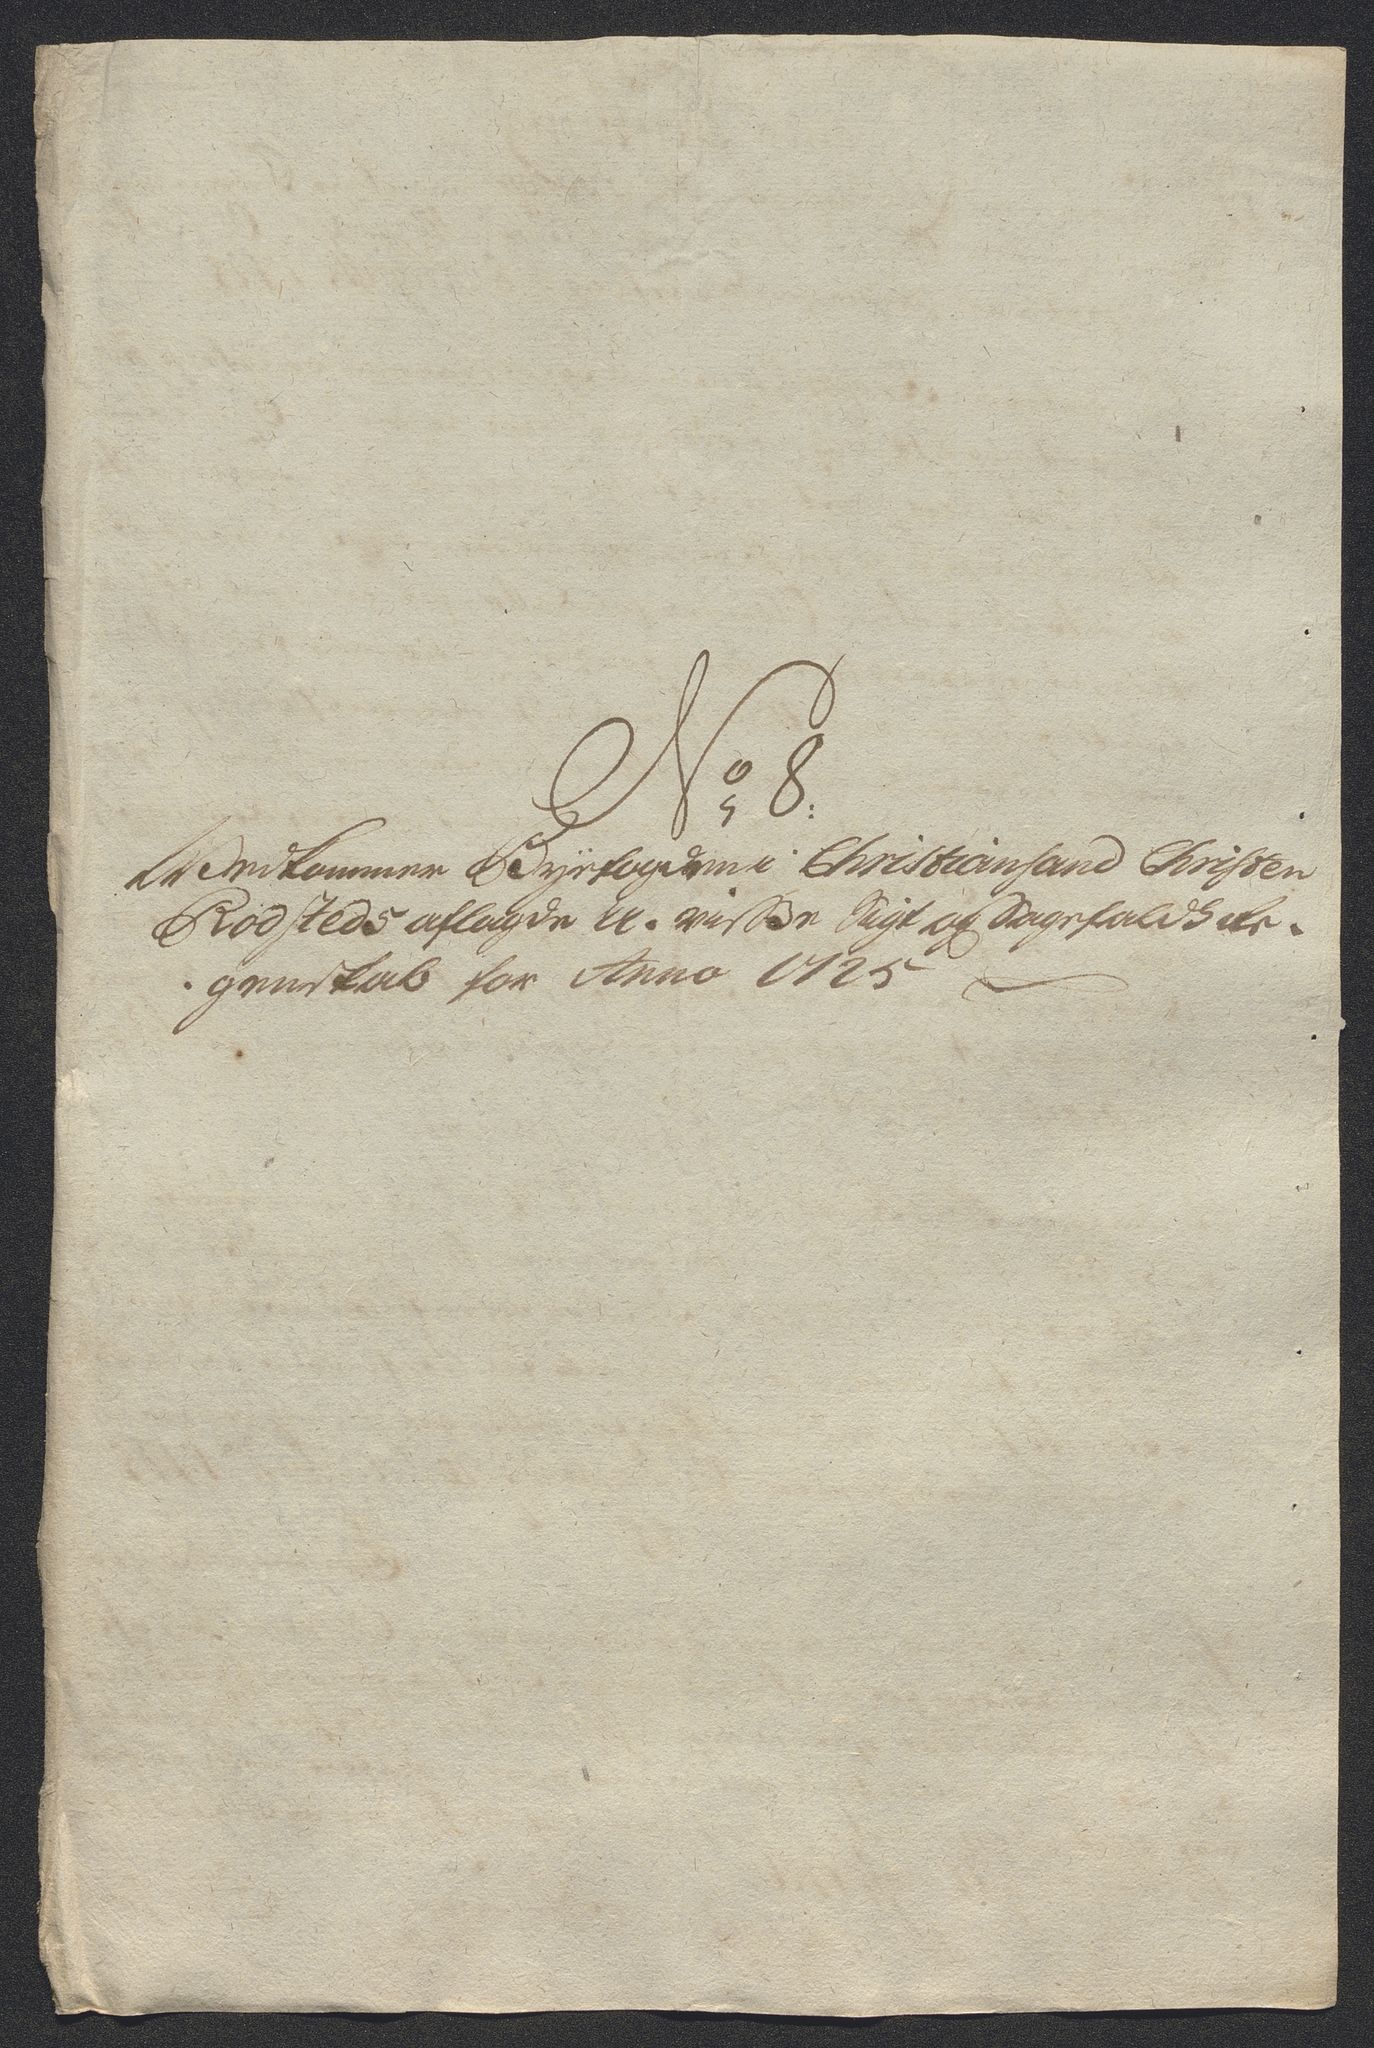 No 8:
Vedkommer Byefogden i Christiansand Christen
Rodsteds aflagde U-visse Sigt og Sagefalds Re-
-genskab for Anno 1725